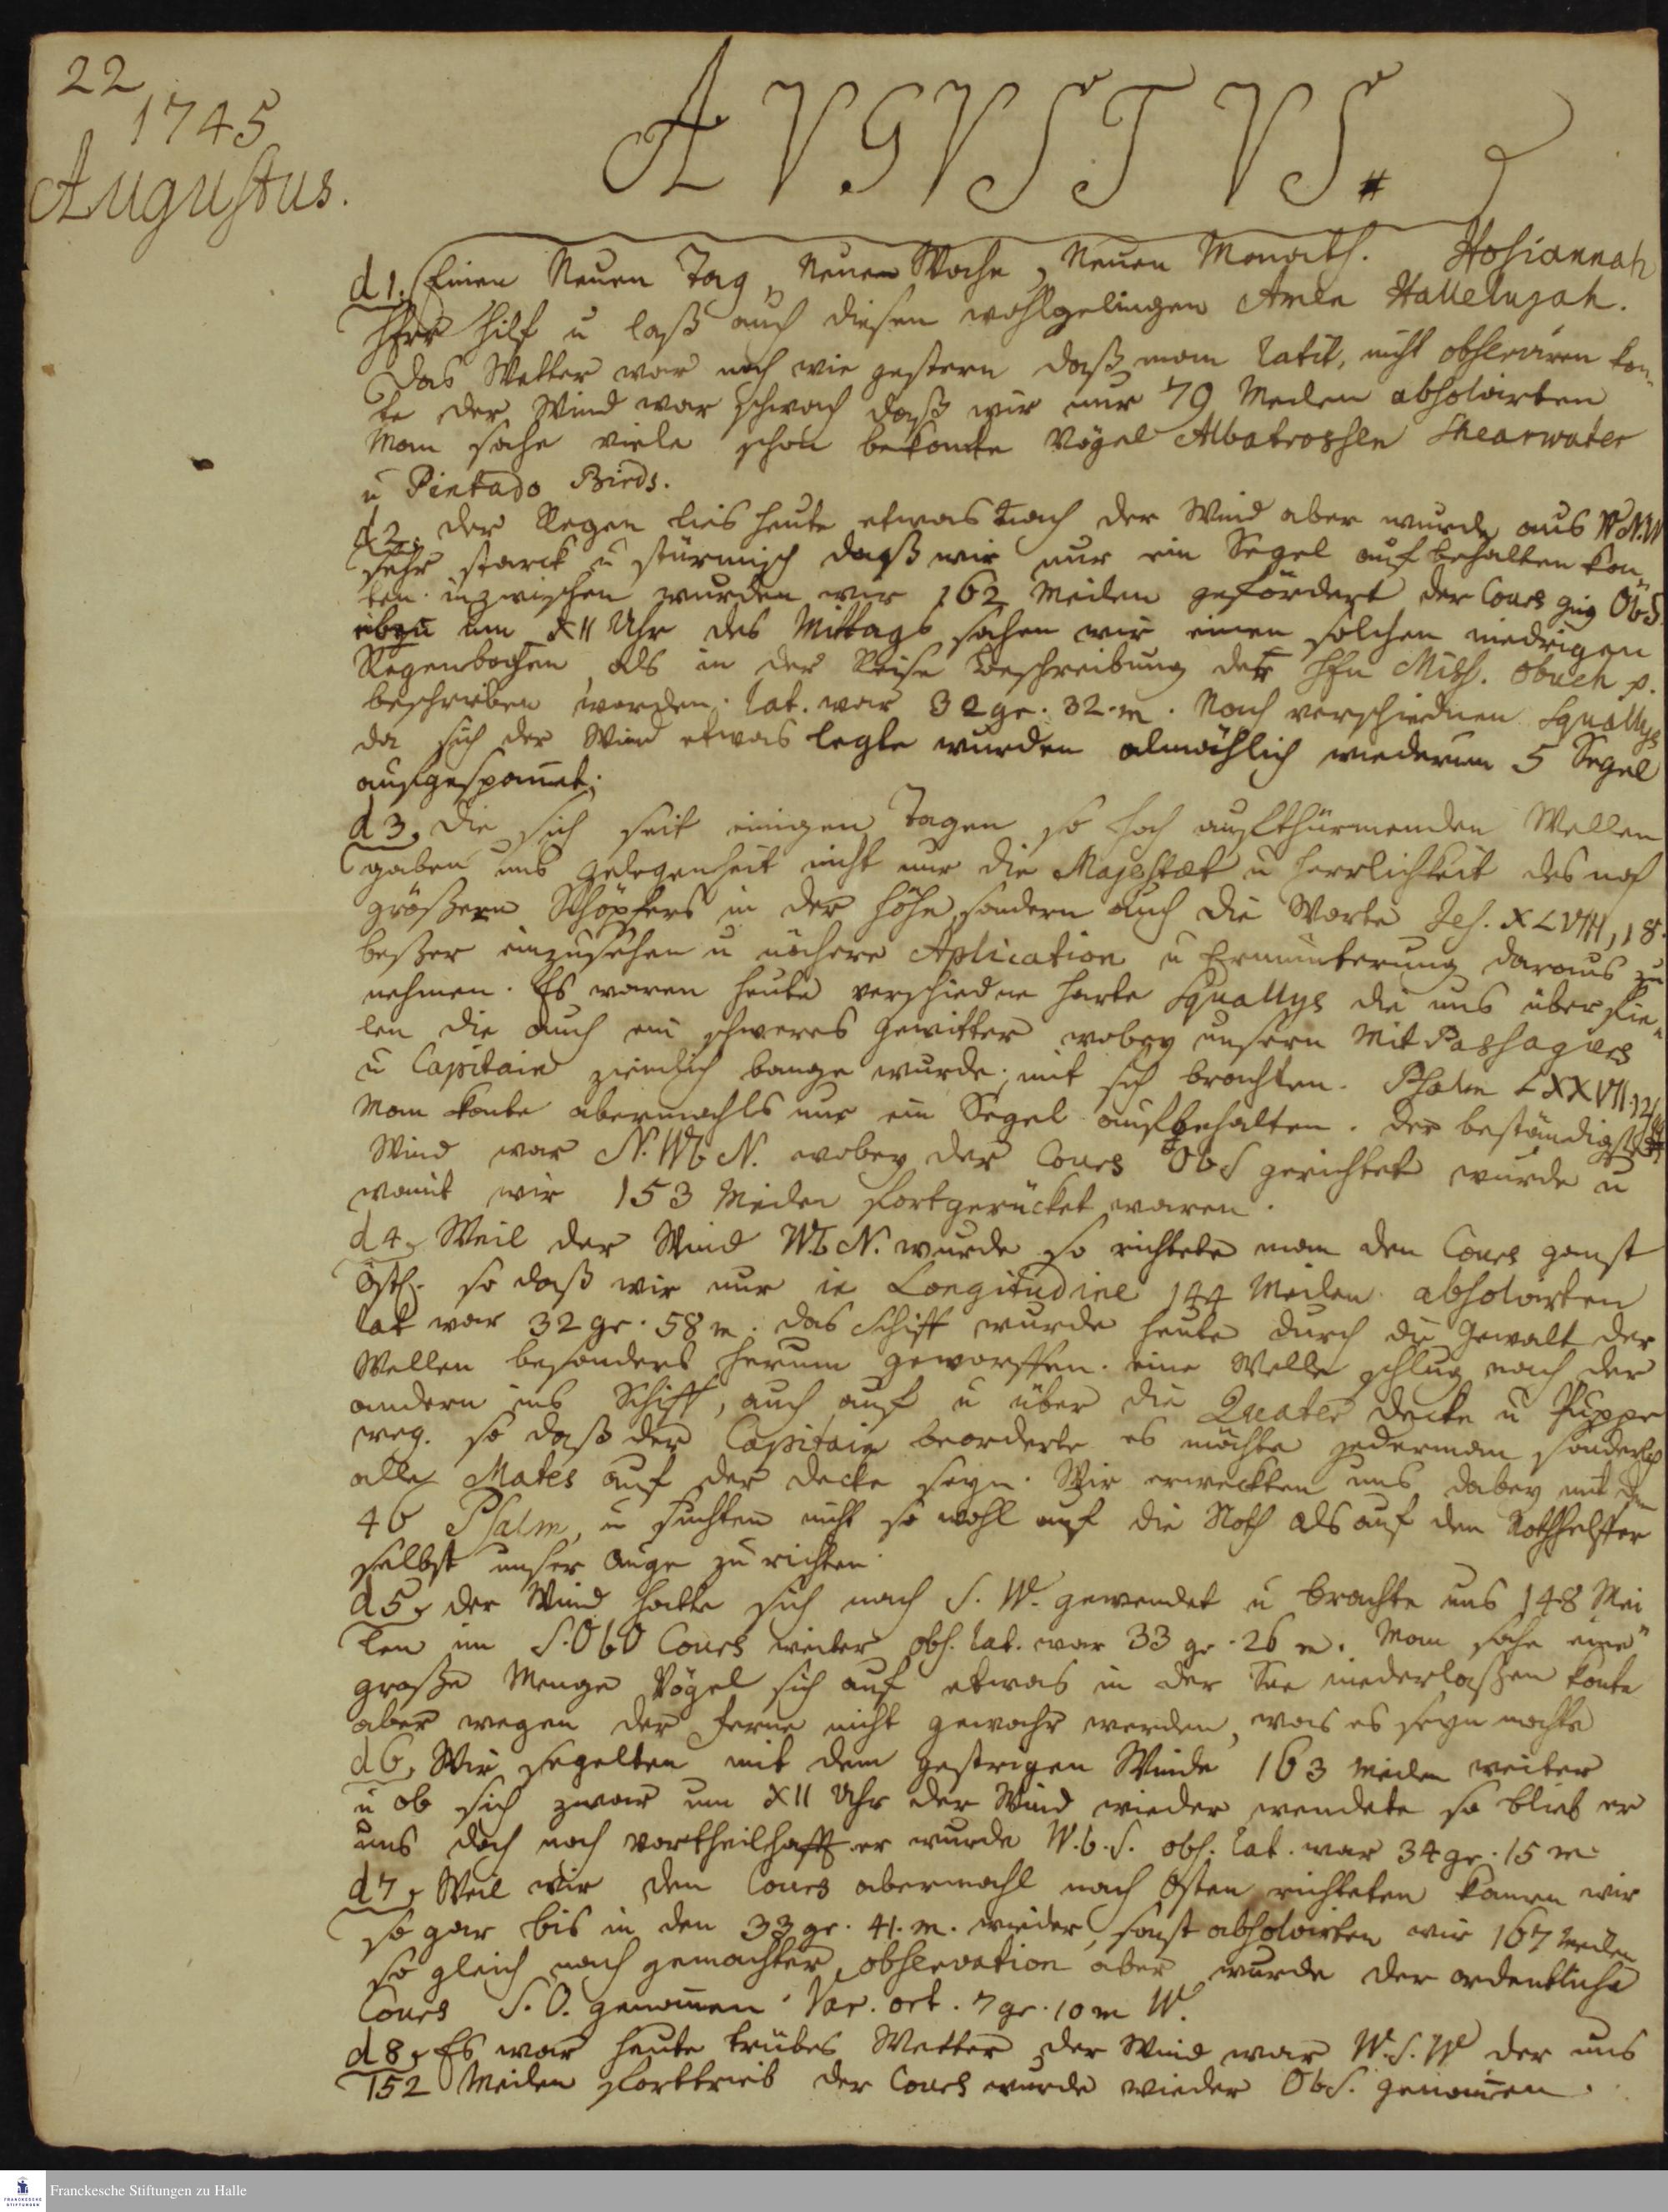 22
1745
Augustus.
AVGVSTVS.
d 1. Einen Neuen Tag, Neuen Woche, Neuen Monath. Hosiannah
HErr hilf u laß auch diesen wohlgelingen Amen Hallelujah.
Das Wetter war noch wie gestern daß man latit. nicht observiren kon-
te der Wind war schwach daß wir nur 79 Meilen absolvirten
Man sahe viele schon bekante Vögel Albatrossen Shearwater
u Pintado Birds.
d 2. der Regen lies heute etwas nach der Wind aber wurde aus W.N.W
sehr starck u stürmisch daß wir nur ein Segel aufbehalten kon-
ten. inzwischen wurden wir 162 Meilen gefördert der Cours ging ObS.
um XII Uhr des Mittags sahen wir einen solchen niedrigen
Regenbogen, als in der Reise Beschreibung der HEn Miss. Obuch p.
beschrieben worden. lat. war 32 gr. 32. m. Nach verschiednen Squallys
da sich der Wind etwas legte wurden almählich wiederum 5 Segel
aufgespannet.
d 3. die sich seit einigen Tagen so hoch aufthürmenden Wellen
gaben uns Gelegenheit nicht nur die Majestæt u Herrlichkeit des noch
größern Schöpfers in der Höhe, sondern auch die Worte Jes. XLVIII, 18.
beßer einzusehen u nähere Aplication u Ermunterung daraus zu
nehmen. Es waren heute verschiedne harte Squallys die uns überfie-
len die auch ein schweres Gewitter wobey unsern Mit Passagiers
u Capitain ziemlich bange wurde, mit sich brachten. Psalm LXXVII.
Man konte abermahls nur ein Segel aufbehalten. der beständigste
Wind war N.WbN. wobey der Cours ObS gerichtet wurde u
womit wir 153 Meilen fortgerücket waren.
d 4. Weil der Wind WbN. wurde so richtete man den Cours ganst
Östl. so daß wir nur in Longitudine 144 Meilen absolvirten
lat war 32 gr. 58 m. das Schiff wurde heute durch die Gewalt der
Wellen besonders herum geworffen. eine Welle schlug nach der
andern ins Schiff, auch auf u über die Quater Decke u Puppe
weg. so daß der Capitain beorderte es möchte jederman sonderlich
alle Mates auf der decke seyn. Wir erweckten uns dabey mit dem
46 Psalm, u suchten nicht so wohl auf die Noth als auf den Nothhelffer
selbst unser Auge zu richten.
d 5. der Wind hatte sich nach S. W. gewendet u brachte uns 148 Mei
len im S.ObO Cours weiter obs. lat. war 33 gr. 26 m. Man sahe eine
große Menge Vögel sich auf etwas in der See niederlaßen konte
aber wegen der ferne nicht gewahr werden, was es seyn mochte
d 6. Wir segelten mit dem gestrigen Winde 163 Meilen weiter
u ob sich zwar um XII Uhr der Wind wieder wendete so blieb er
uns doch noch vortheilhafft er wurde W.b.S. obs. lat. war 34 gr. 15 m
d 7. Weil wir den Cours abermahl nach Osten richteten kamen wir
so gar bis in den 33 gr. 41. m. wieder, sonst absolvirten wir 167 Meilen
so gleich nach gemachter observation aber wurde der ordentliche
Cours S.O. genommen. Var. ort. 7 gr. 10 m W.
d 8. Es war heute trübes Wetter der Wind war W.S.W der uns
152 Meilen forttrieb der Cours wurde wieder ObS. genommen.
FRANCKESCHE STIFTUNGEN
Franckesche Stiftungen zu Halle